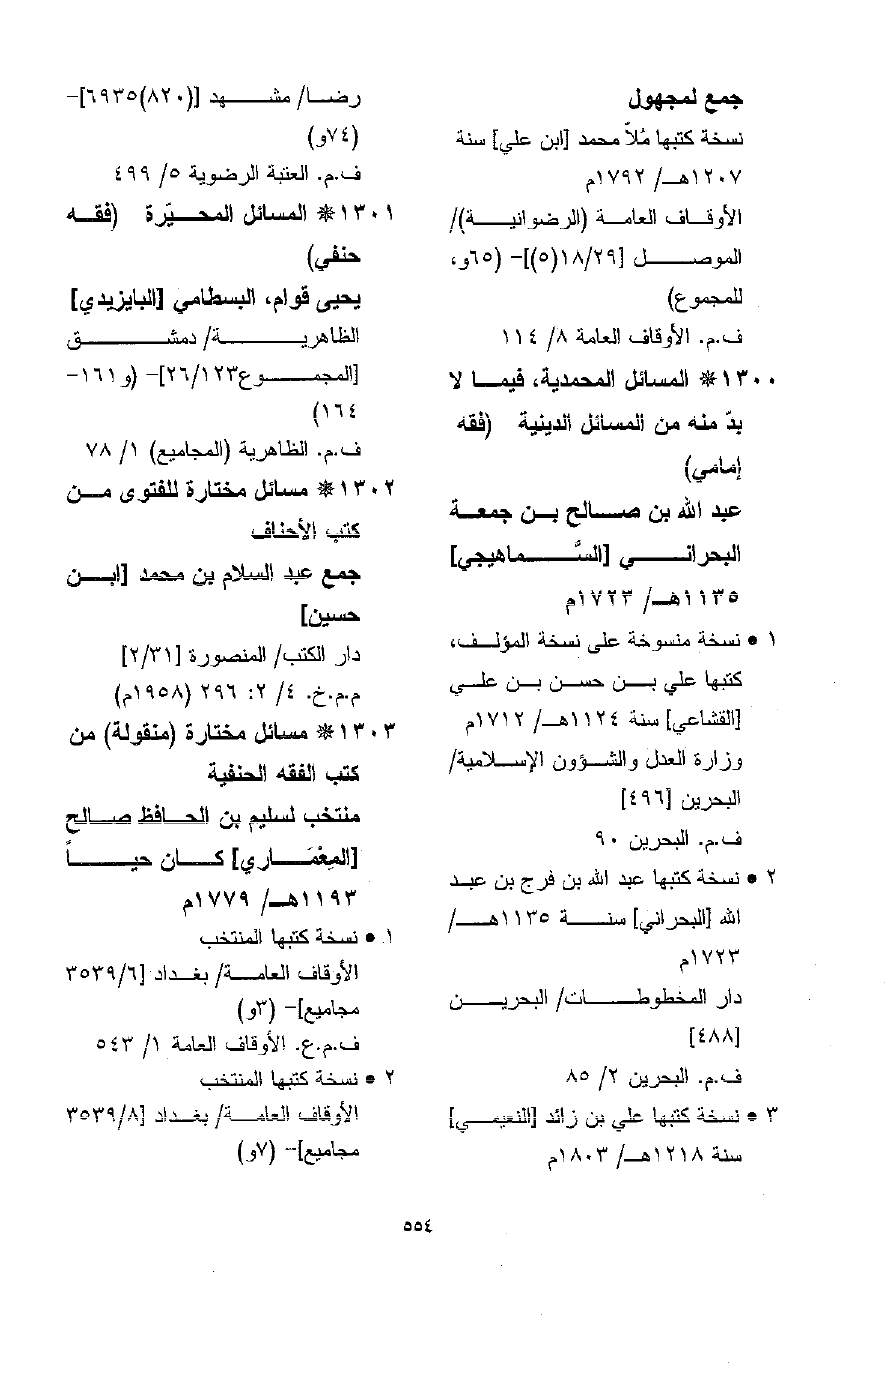 جمع لمجهول
نسخة كتبها مُلاّ محمد [ابن علي] سنة
١٢٠٧هـ/ ١٧٩٢م
الأوقاف العامة (الرضوانية)/
الموصل [١٨/٢٩(٥)]– (٦٥و،
للمجموع)
ف.م. الأوقاف العامة ٨/ ١١٤
١٣٠٠* المسائل المحمدية، فيما لا
بدّ منه من المسائل الدينية (فقه
إمامي)
عبد الله بن صالح بن جمعة
البحراني [السَّماهيجي]
١١٣٥هـ/ ١٧٢٣م
١ • نسخة منسوخة على نسخة المؤلف،
كتبها علي بن حسن بن علي
[القشاعي] سنة ١١٢٤هـ/ ١٧١٢م
وزارة العدل والشؤون الإسلامية/
البحرين [٤٩٦]
ف.م. البحرين ٩٠
٢ • نسخة كتبها عبد الله بن فرج بن عبد
الله [البحراني] سنة ١١٣٥هـ/
١٧٢٣م
دار المخطوطات/ البحرين
[٤٨٨]
ف.م. البحرين ٢/ ٨٥
٣ • نسخة كتبها علي بن زائد [النعيمي]
سنة ١٢١٨هـ/ ١٨٠٣م
رضا/ مشهد [(٨٢٠)٦٩٣٥]–
(٧٤و)
ف.م. العتبة الرضوية ٥/ ٤٩٩
١٣٠١* المسائل المحيّرة (فقه
حنفي)
يحيى قوام، البسطامي [البايزيدي]
الظاهرية/ دمشق
[المجموع١٢٣/٢٦]– (و١٦١–
١٦٤)
ف.م. الظاهرية (المجاميع) ١/ ٧٨
١٣٠٢* مسائل مختارة للفتوى من
كتب الأحناف
جمع عبد السلام بن محمد [ابن
حسين]
دار الكتب/ المنصورة [٢/٣١]
م.م.خ. ٤/ ٢: ٢٩٦ (١٩٥٨م)
١٣٠٣* مسائل مختارة (منقولة) من
كتب الفقه الحنفية
منتخب لسليم بن الحافظ صالح
[المِعْمَاري] كان حياً
١١٩٣هـ/ ١٧٧٩م
١ • نسخة كتبها المنتخب
الأوقاف العامة/ بغداد [٣٥٣٩/٦
مجاميع]– (٣و)
ف.م.ع. الأوقاف العامة ١/ ٥٤٣
٢ • نسخة كتبها المنتخب
الأوقاف العامة/ بغداد [٣٥٣٩/٨
مجاميع]– (٧و)
٥٥٤